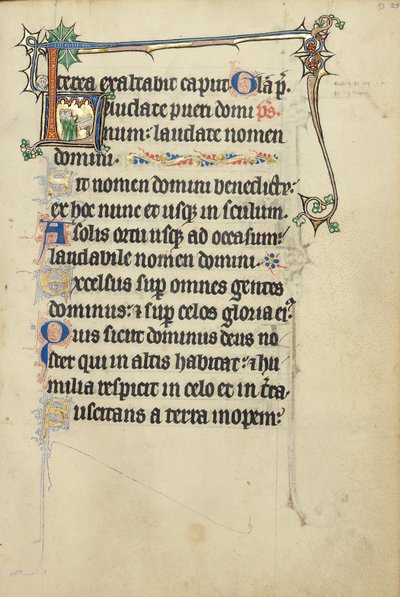 terea exaltabit caput Gl'a p̃.
Laudate pueri domi ps̃.
num: laudate nomen
domini.
Sit nomen domini benedictũ
ex hoc nunc et usq; in seculum.
A solis ortu usq; ad occasum:
laudabile nomen domini.
Excelsus sup̃ omnes gentes
dominus: ⁊ sup̃ celos gloria ei⁹.
Quis sicut dominus deus no
ster qui in altis habitat: ⁊ hu
milia respicit in celo et in t̃ra.
Suscitans a terra inopem: